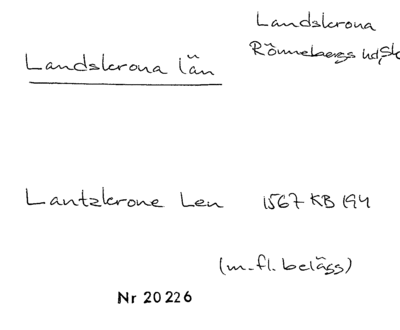 Landskrona
Rönnebergs hd, Sk
Landskrona län
Lantzkrone Len 1567 KB 194
(m.fl. belägg)
Nr 20226